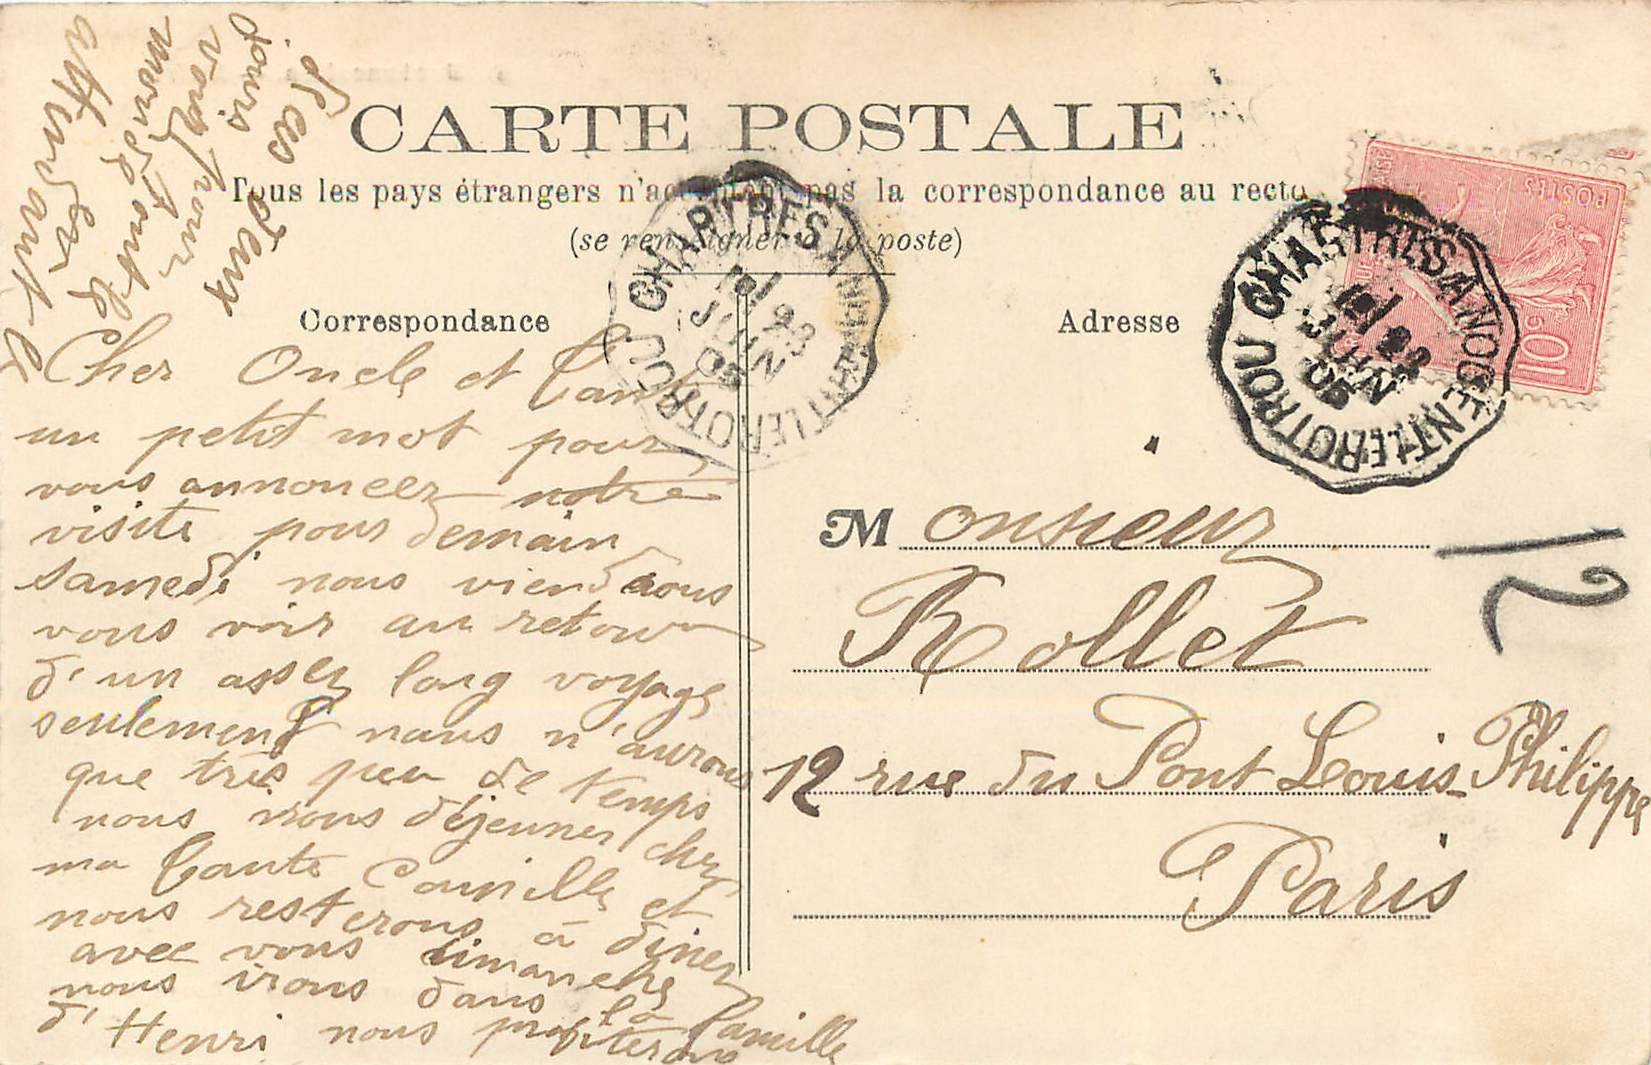 CARTE POSTALE
Tous les pays étrangers n'acceptent pas la correspondance au recto
(se renseigner à la poste)
Correspondance
Adresse
CHARTRES A NOGENT LE ROTROU
23 JUIN 05
CHARTRES A NOGENT LE ROTROU
23 JUIN 05
POSTES
10
Monsieur
Rollet
12 rue du Pont Louis-Philippe
Paris
12
Cher Oncle et Tante
un petit mot pour
vous annoncer notre
visite pour demain
samedi nous viendrons
vous voir au retour
d'un assez long voyage
seulement nous n'aurons
que très peu de temps
nous irons déjeuner chez
ma Tante Camille et
nous resterons à diner
avec vous dimanche
nous irons dans la famille
d'Henri nous profiterons
ces deux
jours
vous